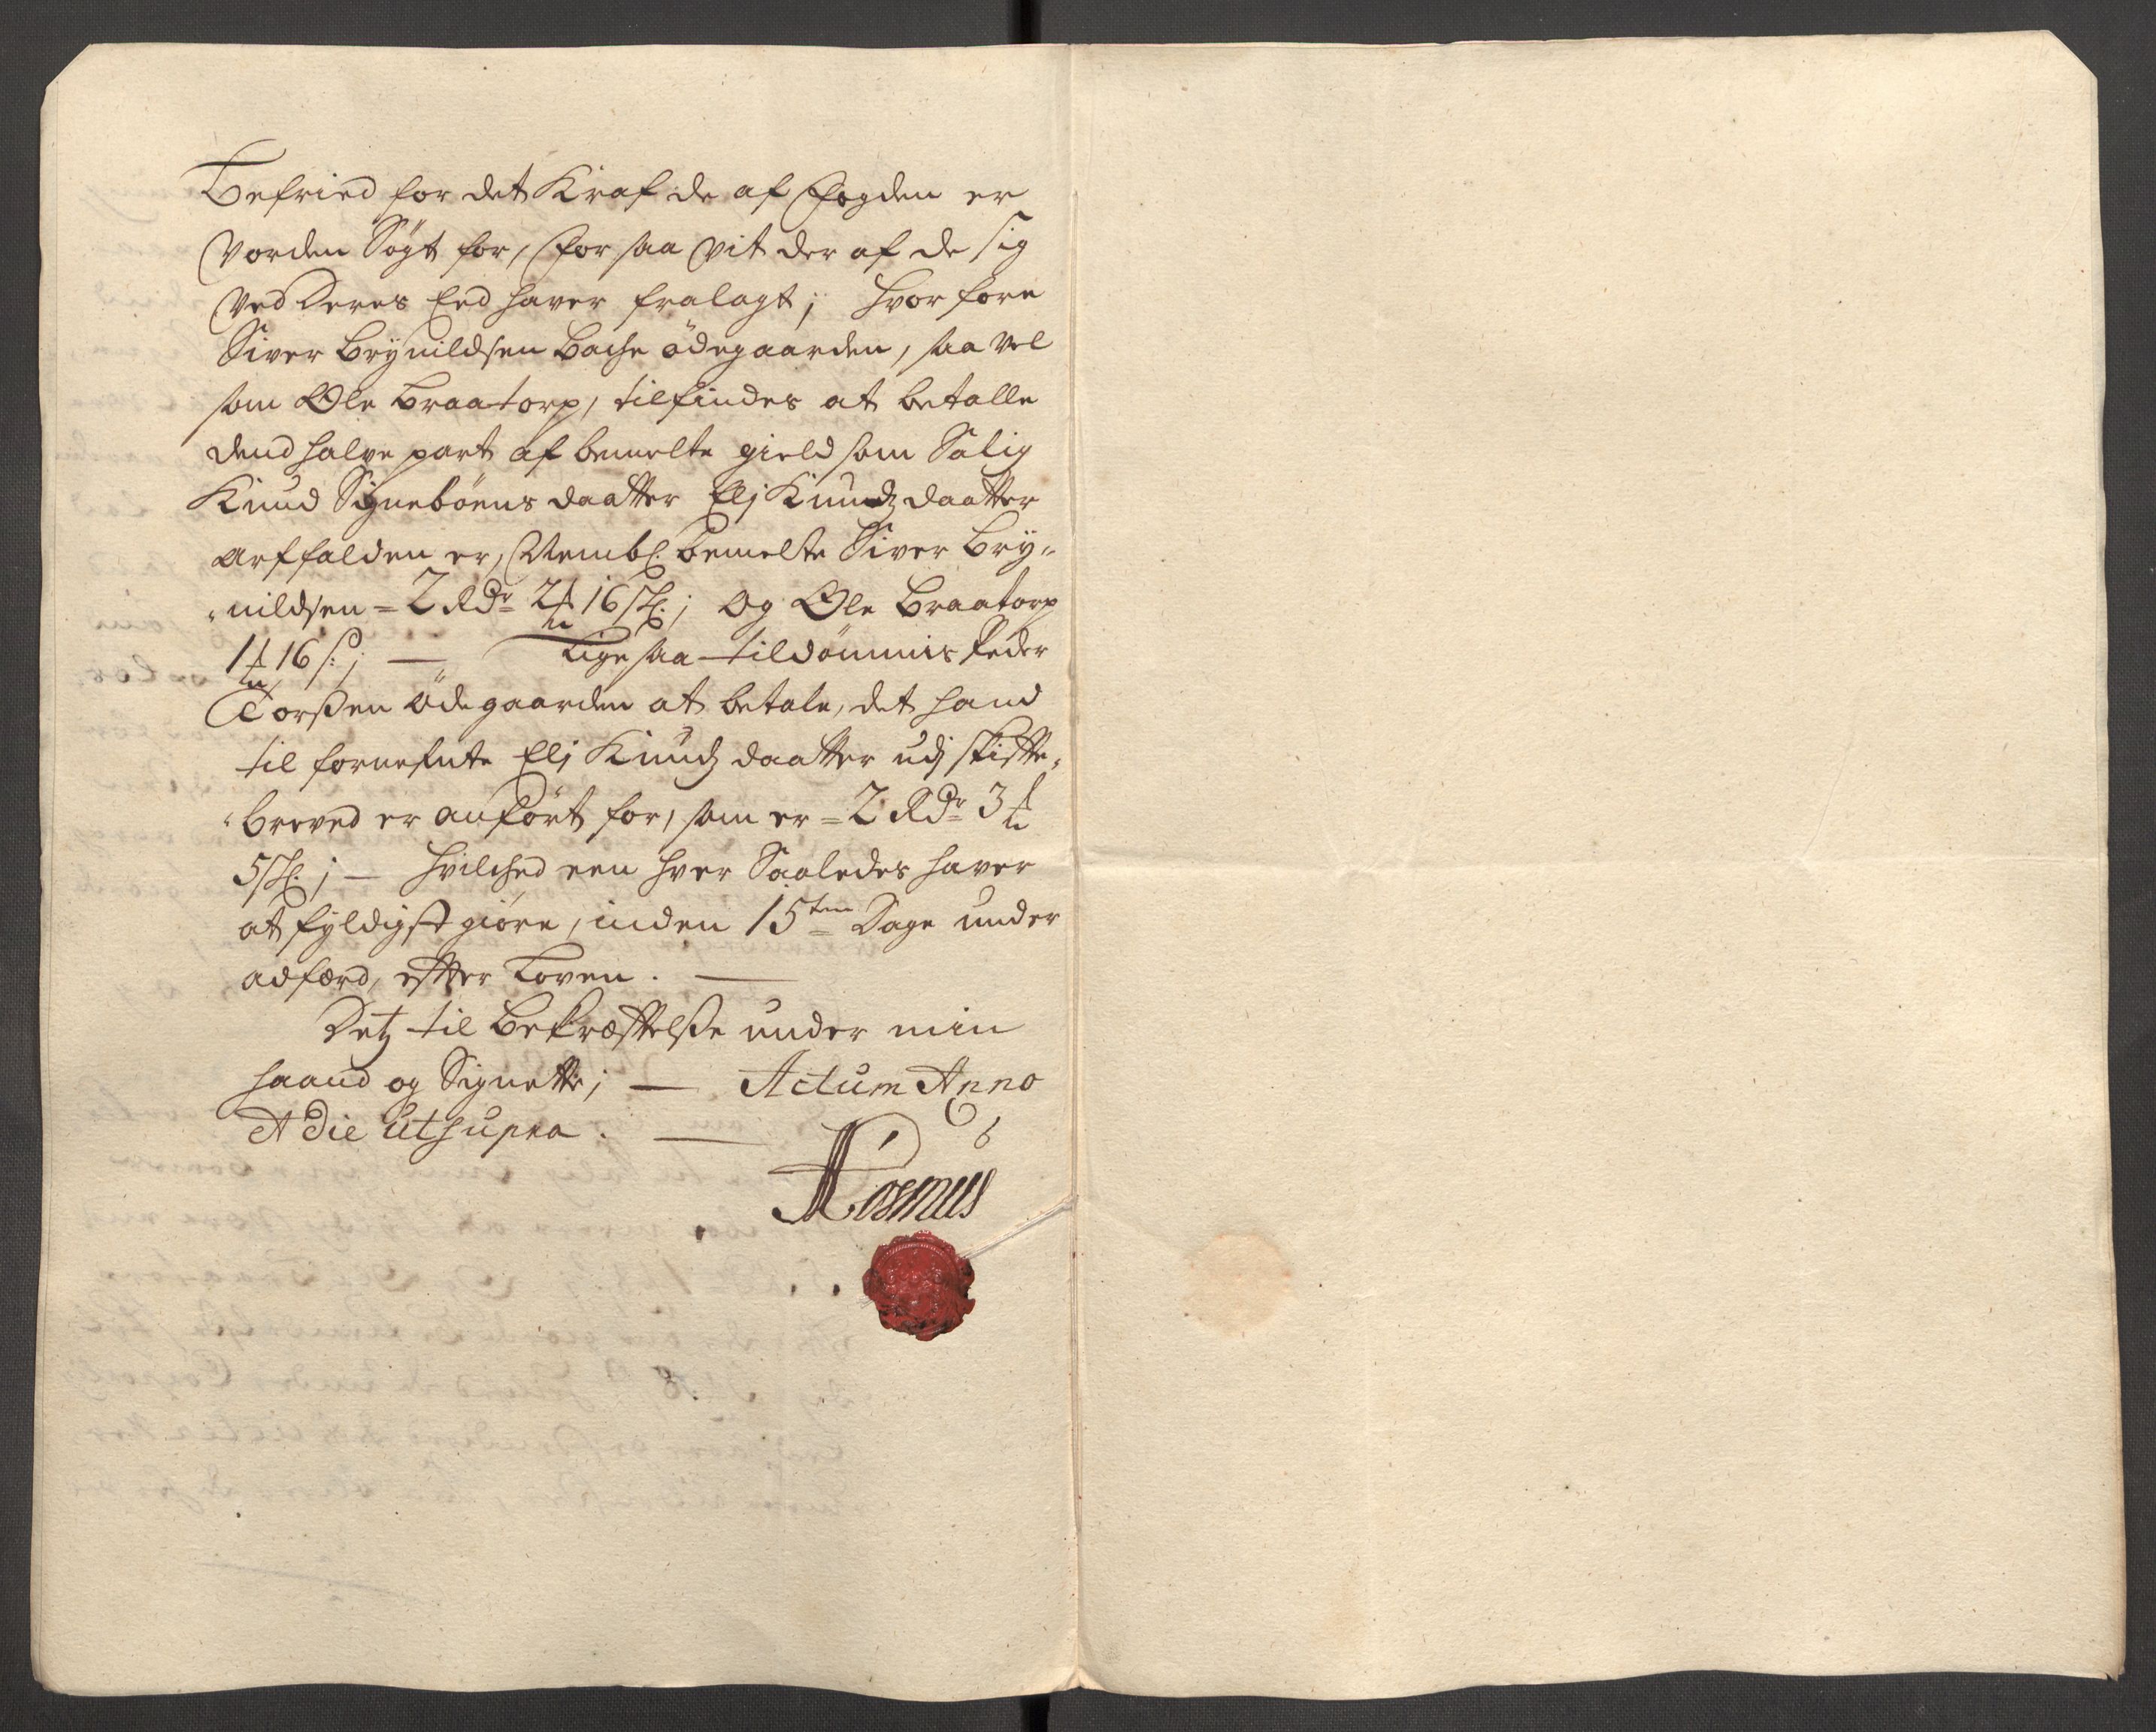 Befried for det Kraf de af Fogden er
Vorden Søgt for, for saa Vit der af de sig
Ved Deres Eed haver fralagt; hvor fore
Siver Brynildsen Bache ödegaarden, saa vel
som Ole Braatorp, tilfindes at betalle
dend halve part af bemelte gield som Salig
Knud Signeböens daatter Elj Knudz daatter
arffalden er, Nembl. bemelte Siver Bry-
nildsen = 2 Rdr 2 16 sk.; og Ole Braatorp
1 16 s:; — Lige saa tildömmis Peder
Torßen ödegaarden at betale, det hand
til fornefnte Elj Knudz daatter udj skifte-
breved er anfört for, som er = 2 Rdr 3
5 sk.; — hvilched een hver Saaledes haver
at fyldigst giöre, inden 15ten Dage under
adfærd, efter Loven. —
Detz til Bekræftelße under min
haand og Signette; — Actum Anno
& Die utsupra. —